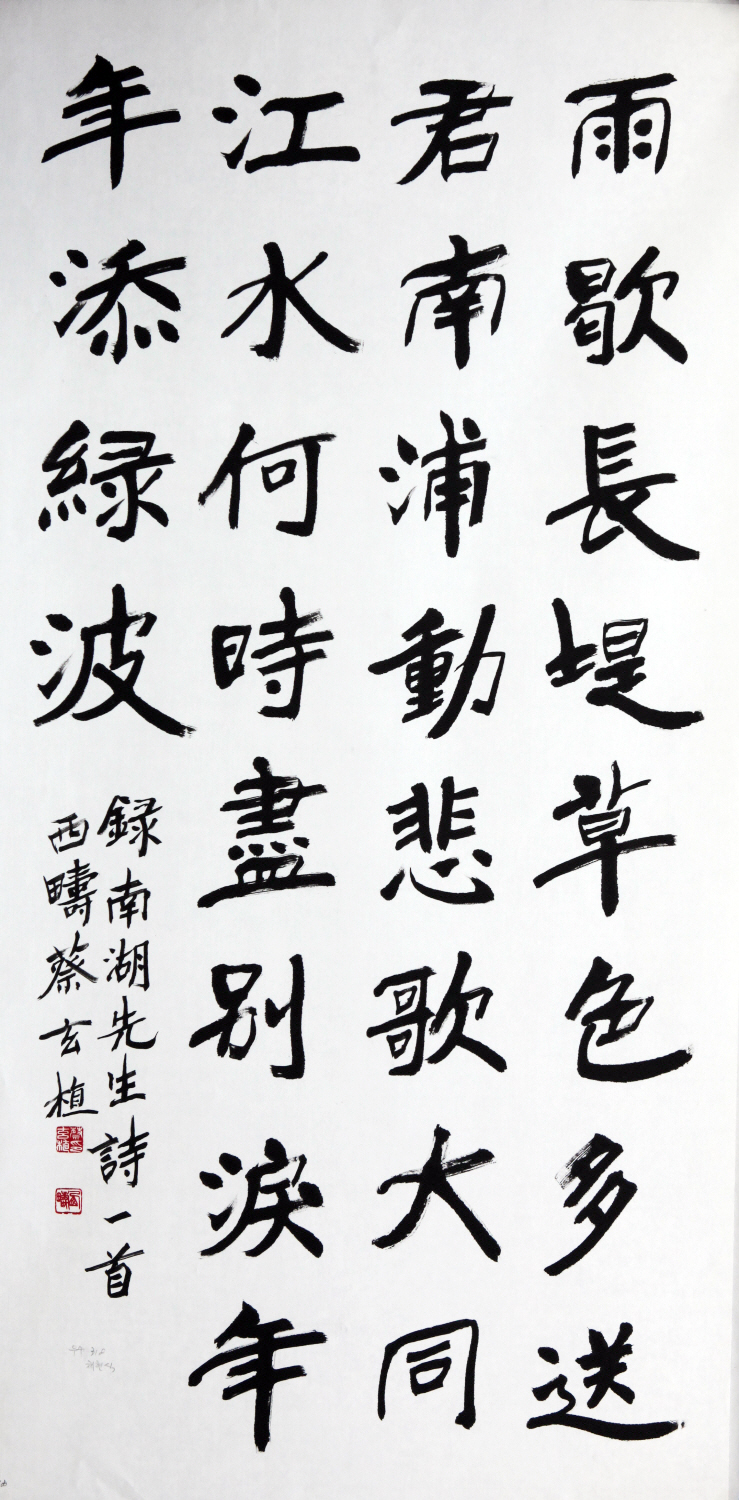 雨歇長堤草色多送
君南浦動悲歌大同
江水何時盡别淚年
年添綠波
錄南湖先生詩一首
西疇蔡玄植